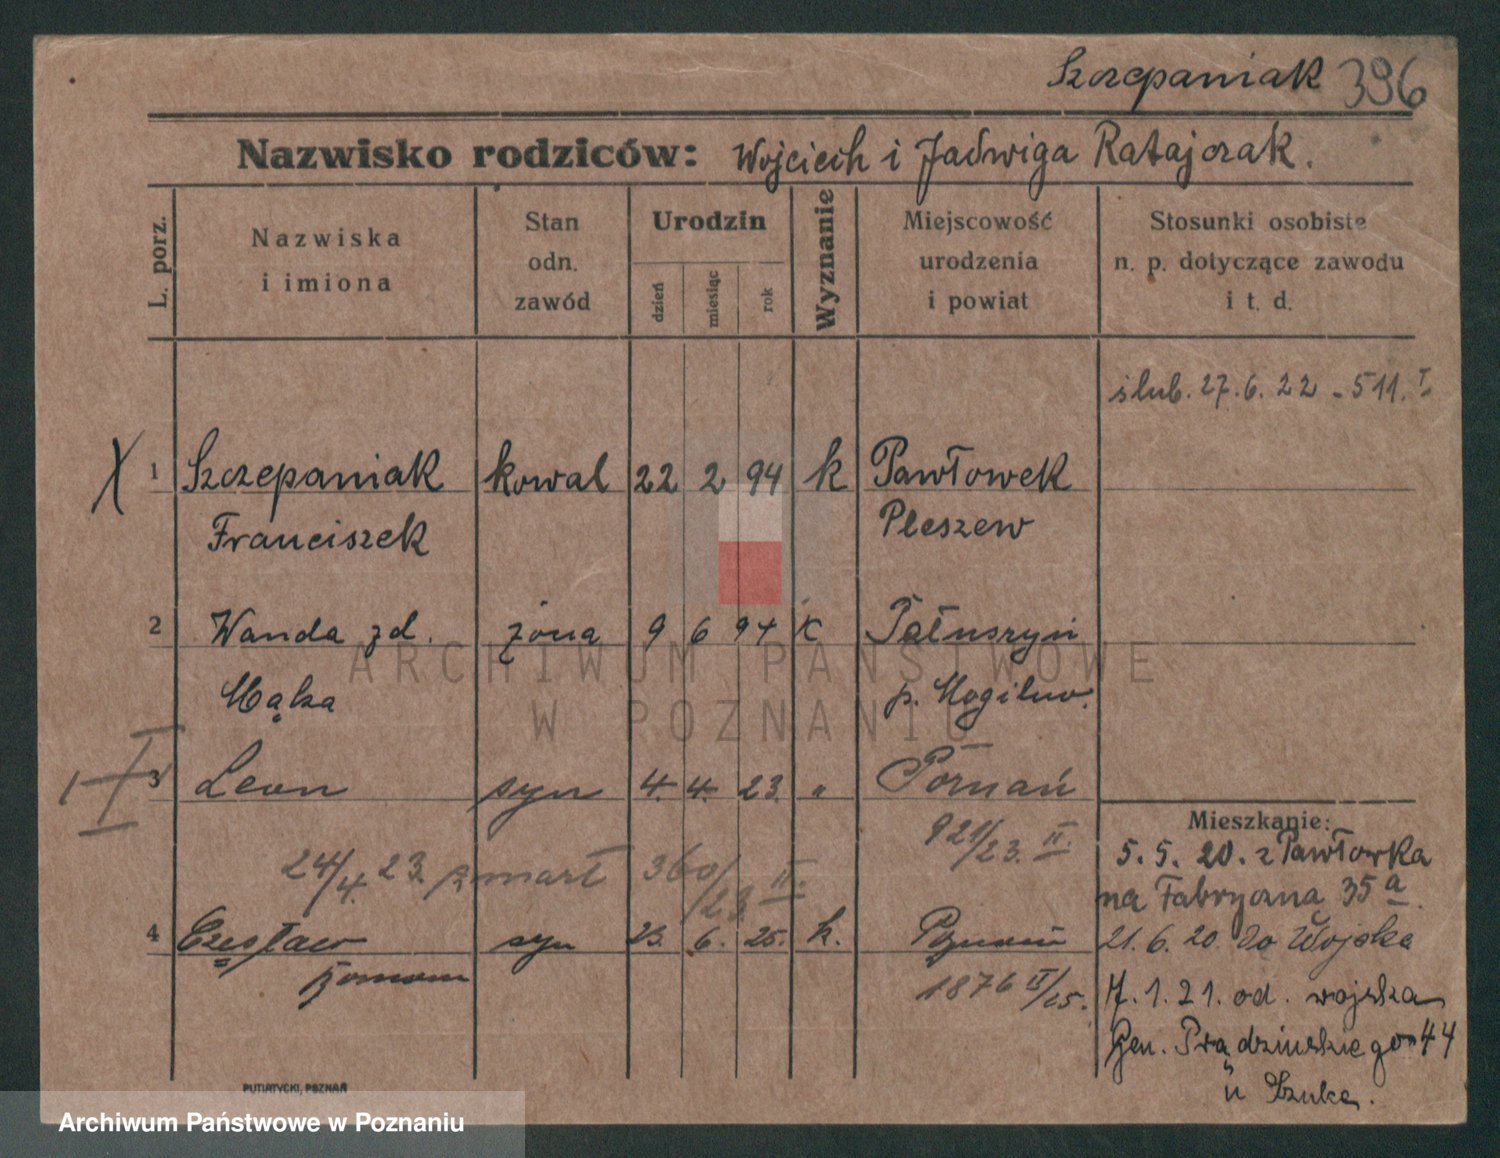 Szczepaniak 396
Nazwisko rodziców: Wojciech i Jadwiga Ratajczak.
L. porz.
Nazwiska
i imiona
Stan
odn.
zawód
Urodzin
dzień
miesiąc
rok
Wyznanie
Miejscowość
urodzenia
i powiat
Stosunki osobiste
n. p. dotyczące zawodu
i t. d.
ślub. 27.6.22 - 511. I
X 1 Szczepaniak kowal 22 2 94 k Pawłowek
Franciszek Pleszew
2 Wanda zd. żona 9 6 94 K
Mąka p. Mogilno.
3 Leon syn 4. 4. 23. " Poznań
921/23. II.
24/4. 23. zmarł 360/23 II.
4 Czesław syn 23. 6. 25. k. Poznań
Roman 1876 II/25.
Mieszkanie:
5. 5. 20. z Pawłowka
na Fabryczna 35a.
21. 6. 20. do Wojska
7. 1. 21. od. wojska
Gen. Prądzińskiego 44
u
PUTIATYCKI, POZNAŃ
ARCHIWUM PAŃSTWOWE
W POZNANIU
Archiwum Państwowe w Poznaniu